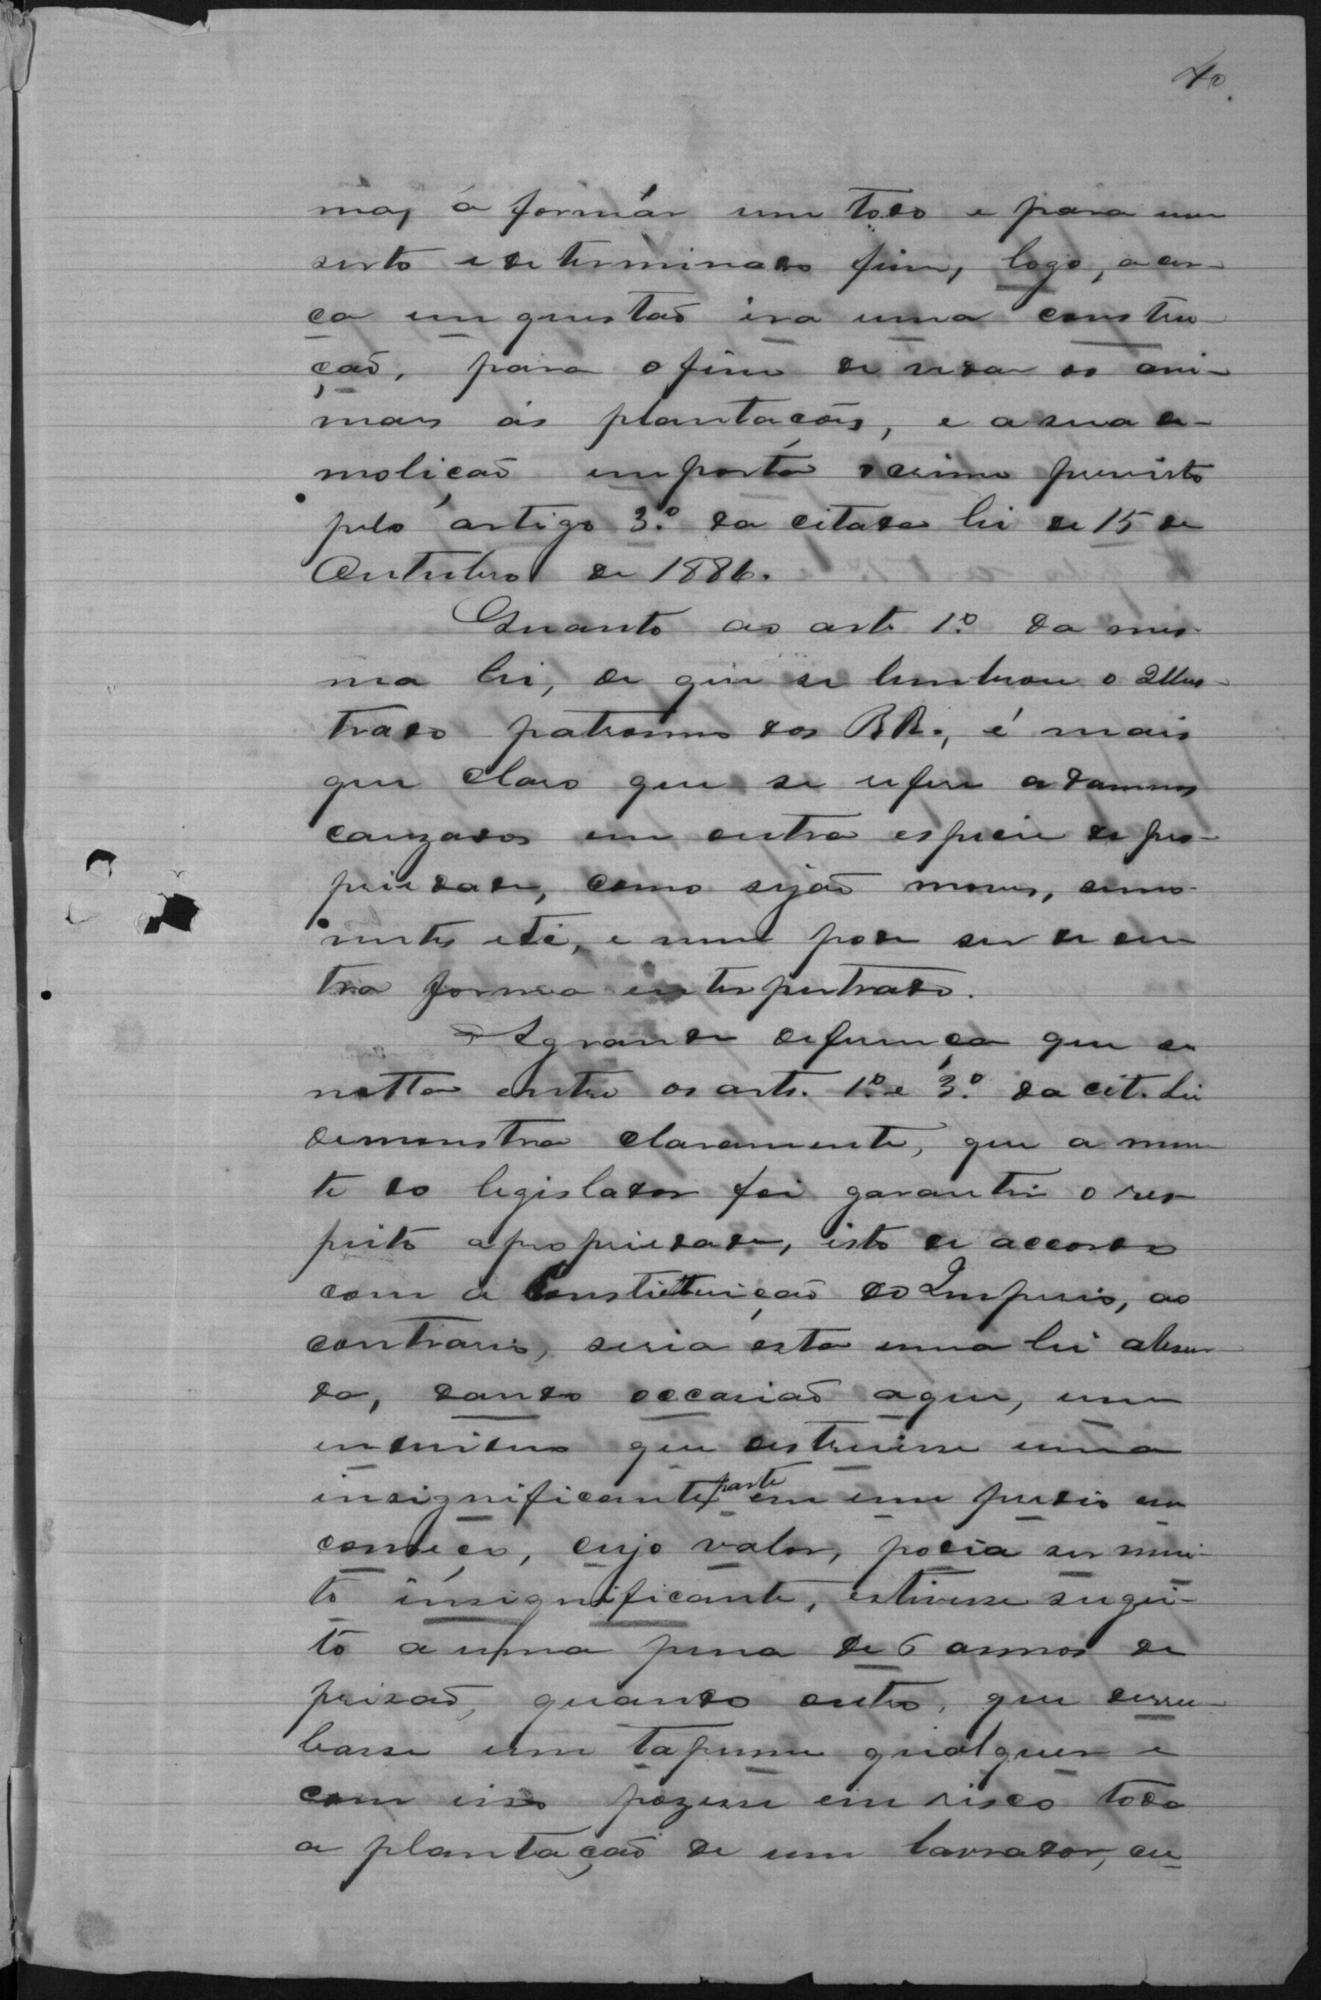 40.
ma, á formár um todo e para um
serto e determinado fim, logo, a cer-
ca em questaõ era uma constru
çaõ, para o fim de vedar os ani-
maes ás plantacões, e a sua de-
moliçaõ importa o crime previsto
pelo artigo 3.º da citada lei de 15 de
Outubro de 1886.
Quanto ao art. 1.º da mes-
ma lei, de que se lembrou o Illus-
trado patrono dos RR., é mais
que claro que se refere a damnos
cauzados em outra especie de pro-
priedade, como sejaõ moveis, semo-
ventes etc, e nem pode ser de ou
tra forma interpertrado.
A grande deferença que se
notta entre os arts. 1.º e 3.º da cit. Lei
demonstra claramente, que a men
te do legislador foi garantir o res
peito a propriedade, isto de accordo
com a Constituição do Imperio, ao
contrario, seria esta uma lei absur
da, dando occasiaõ a que, um
individuo que destruisse uma
insignificante parte em um predio em
começo, cujo valor, podia ser mui-
to insignificante, estivesse sugei-
to a uma pena de 6 annos de
prizaõ, quando outro, que derru-
basse um tapume qualquer e
com isso pozesse em risco toda
a plantação de um lavrador, cu